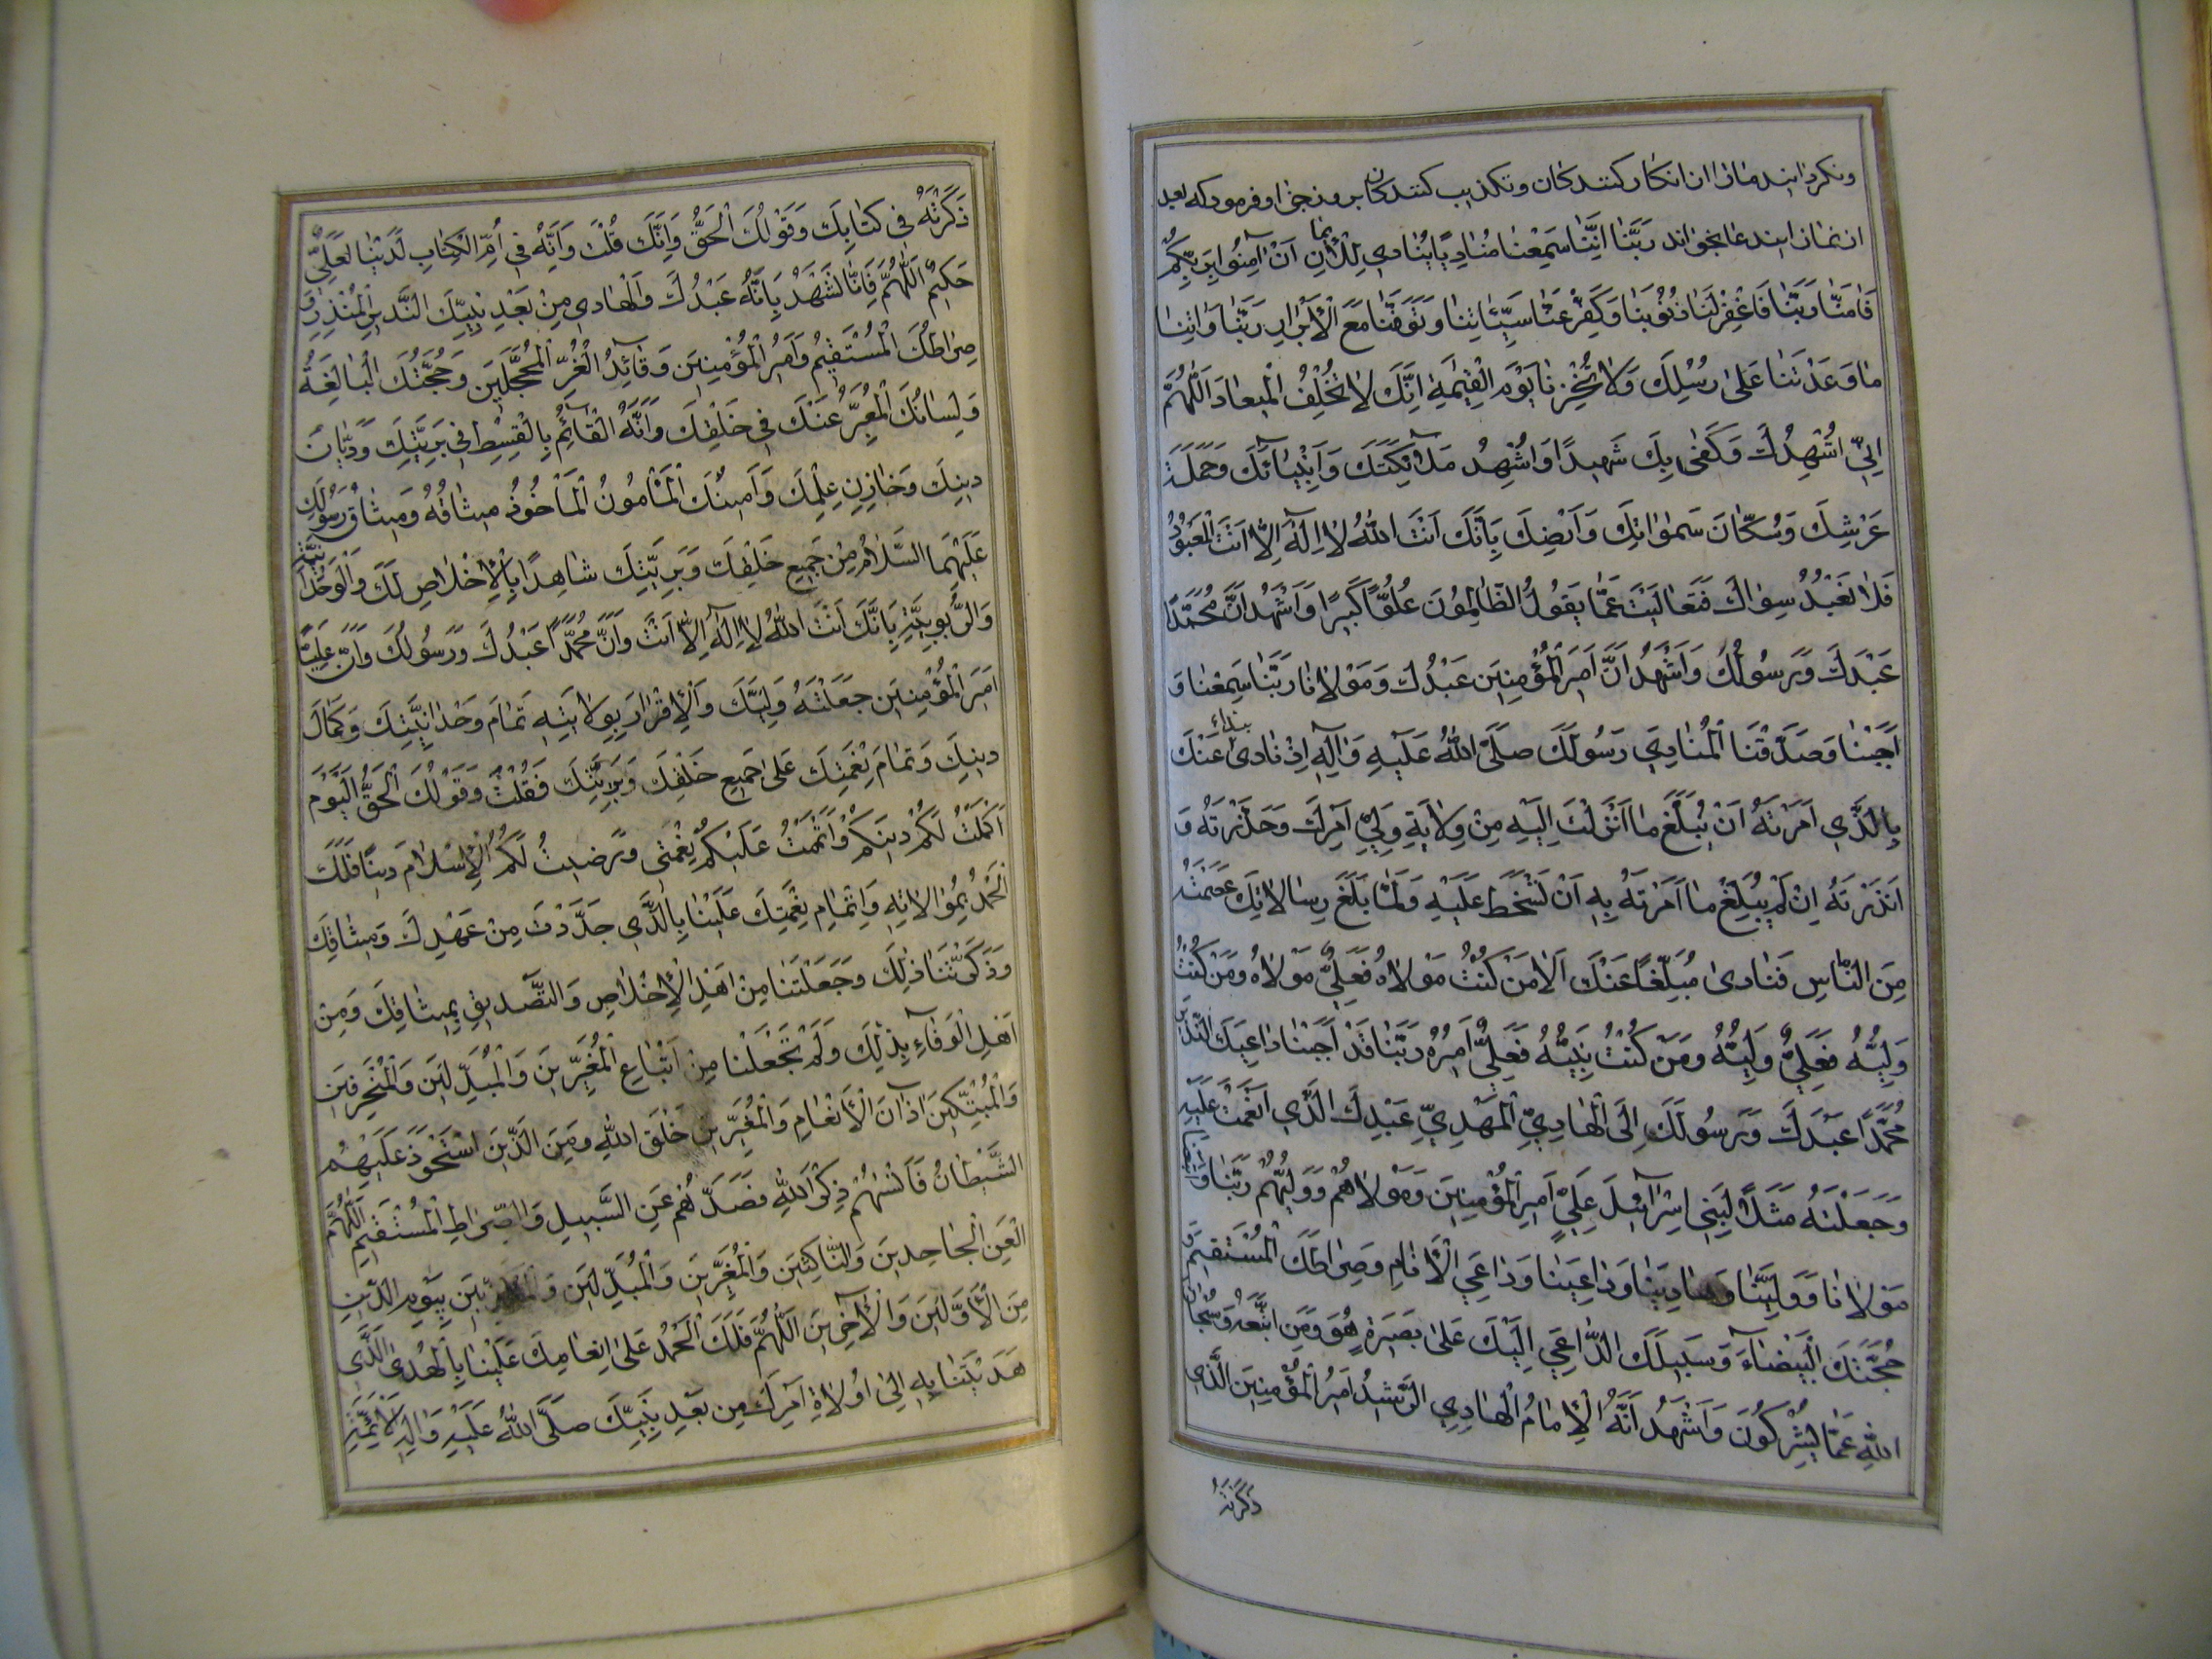 ونکردانید مارا از انکار کنندکان وتکذیب کنندکان بروز جزا وفرمود که بعد
از نماز این دعا بخواند رَبَّنا اِنَّنا سَمِعْنا مُنادِیًا یُنادی لِلْایمانِ اَنْ امِنُوا بِرَبِّکُمْ
فَامَنّا رَبَّنا فَاغْفِرْلَنا ذُنُوبَنا وَکَفِّرْ عَنّا سَیِّئاتِنا وَتَوَفَّنا مَعَ الْاَبْرارِ رَبَّنا وَاتِنا
ما وَعَدْتَنا عَلی رُسُلِكَ وَلا تُخْزِنا یَوْمَ الْقِیٰمَةِ اِنَّكَ لا تُخْلِفُ الْمیعادَ اَللّهُمَّ
اِنّی اُشْهِدُكَ وَکَفی بِكَ شَهیدًا وَاُشْهِدُ مَلآئِکَتَكَ وَاَنْبِیآئَكَ وَحَمَلَةَ
عَرْشِكَ وَسُکّانَ سَمواتِكَ وَاَرْضِكَ بِاَنَّكَ اَنْتَ اللّهُ لا اِلهَ اِلاّ اَنْتَ الْمَعْبُودُ
فَلا نَعْبُدُ سِواكَ فَتَعالَیْتَ عَمّا یَقُولُ الظّالِمُونَ عُلُوًّا کَبیرًا وَاَشْهَدُ اَنَّ مُحَمَّدًا
عَبْدُكَ وَرَسُولُكَ وَاَشْهَدُ اَنَّ اَمیرَ الْمُؤْمِنینَ عَبْدُكَ وَمَوْلانا رَبَّنا سَمِعْنا وَ
اَجَبْنا وَصَدَّقْنَا الْمُنادِیَ رَسُولَكَ صَلَّی اللّهُ عَلَیْهِ وَآلِهِ اِذْ نادی بنداء عَنْكَ
بِالَّذی اَمَرْتَهُ اَنْ یُبَلِّغَ ما اَنْزَلْتَ اِلَیْهِ مِنْ وِلایَةِ وَلِیِّ اَمْرِكَ وَحَذَّرْتَهُ وَ
اَنْذَرْتَهُ اِنْ لَمْ یُبَلِّغْ ما اَمَرْتَهُ بِهِ اَنْ تَسْخَطَ عَلَیْهِ وَلَمّا بَلَّغَ رِسالاتِكَ عَصَمْتَهُ
مِنَ النّاسِ فَنادی مُبَلِّغًا عَنْكَ اَلا مَنْ کُنْتُ مَوْلاهُ فَعَلِیٌّ مَوْلاهُ وَمَنْ کُنْتُ
وَلِیَّهُ فَعَلِیٌّ وَلِیُّهُ وَمَنْ کُنْتُ نَبِیَّهُ فَعَلِیٌّ اَمیرُهُ رَبَّنا قَدْ اَجَبْنا داعِیَكَ النَّذیرَ
مُحَمَّدًا عَبْدَكَ وَرَسُولَكَ اِلَی الْهادِیِّ الْمَهْدِیِّ عَبْدِكَ الَّذی اَنْعَمْتَ عَلَیْهِ
وَجَعَلْتَهُ مَثَلًا لِبَنی اِسْرآئیلَ عَلِیٍّ اَمیرِ الْمُؤْمِنینَ وَمَوْلاهُمْ وَوَلِیُّهُمْ رَبَّنا وَاتَّبَعْنا
مَوْلانا وَوَلِیَّنا وَهادِیَنا وَداعِیَنا وَداعِیَ الْاَنامِ وَصِراطَكَ الْمُسْتَقیمَ وَ
حُجَّتَكَ الْبَیْضآءَ وَسَبیلَكَ الدّاعِیَ اِلَیْكَ عَلی بَصیرَةٍ هُوَ وَمَنِ اتَّبَعَهُ وَسُبْحانَ
اللّهِ عَمّا یُشْرِکُونَ وَاَشْهَدُ اَنَّهُ الْاِمامُ الْهادِی الرَّشیدُ اَمیرُ الْمُؤْمِنینَ الَّذی
ذَکَرْتَهُ
ذَکَرْتَهُ فی کِتابِكَ وَقَوْلُكَ الْحَقُّ وَاِنَّكَ قُلْتَ وَاِنَّهُ فی اُمِّ الْکِتابِ لَدَیْنا لَعَلِیٌّ
حَکیمٌ اَللّهُمَّ فَاِنّا نَشْهَدُ بِاَنَّهُ عَبْدُكَ وَالْهادی مِنْ بَعْدِ نَبِیِّكَ النَّذیرِ الْمُنْذِرِ وَ
صِراطُكَ الْمُسْتَقیمُ وَاَمیرُ الْمُؤْمِنینَ وَقآئِدُ الْغُرِّ الْمُحَجَّلینَ وَحُجَّتُكَ الْبالِغَةُ
وَلِسانُكَ الْمُعَبِّرُ عَنْكَ فی خَلْقِكَ وَاَنَّهُ الْقآئِمُ بِالْقِسْطِ فی بَرِیَّتِكَ وَدَیّانُ
دینِكَ وَخازِنِ عِلْمِكَ وَاَمینُكَ الْمَاْمُونُ الْمَاْخُوذُ میثاقُهُ وَمیثاقُ رَسُولِكَ
عَلَیْهِمَا السَّلامُ مِنْ جَمیعِ خَلْقِكَ وَبَرِیَّتِكَ شاهِدًا بِالْاِخْلاصِ لَكَ وَالْوَحْدانِیَّةِ
وَالرُّبُوبِیَّةِ بِاَنَّكَ اَنْتَ اللّهُ لا اِلهَ اِلاّ اَنْتَ وَاَنَّ مُحَمَّدًا عَبْدُكَ وَرَسُولُكَ وَاَنَّ عَلِیًّا
اَمیرَ الْمُؤْمِنینَ جَعَلْتَهُ وَلِیَّكَ وَالْاِقْرارَ بِوِلایَتِهِ تَمامَ وَحْدانِیَّتِكَ وَکَمالَ
دینِكَ وَتَمامَ نِعْمَتِكَ عَلی جَمیعِ خَلْقِكَ وَبَرِیَّتِكَ فَقُلْتَ وَقَوْلُكَ الْحَقُّ اَلْیَوْمَ
اَکْمَلْتُ لَکُمْ دینَکُمْ وَاَتْمَمْتُ عَلَیْکُمْ نِعْمَتی وَرَضیتُ لَکُمُ الْاِسْلامَ دینًا فَلَكَ
الْحَمْدُ بِمُوالاتِهِ وَاِتْمامِ نِعْمَتِكَ عَلَیْنا بِالَّذی جَدَّدْتَ مِنْ عَهْدِكَ وَمیثاقِكَ
وَذَکَّرْتَنا ذلِكَ وَجَعَلْتَنا مِنْ اَهْلِ الْاِخْلاصِ وَالتَّصْدیقِ بِمیثاقِكَ وَمِنْ
اَهْلِ الْوَفآءِ بِذلِكَ وَلَمْ تَجْعَلْنا مِنْ اَتْباعِ الْمُغَیِّرینَ وَالْمُبَدِّلینَ وَالْمُنْحَرِفینَ
وَالْمُبَتِّکینَ آذانَ الْاَنْعامِ وَالْمُغَیِّرینَ خَلْقَ اللّهِ وَمِنَ الَّذینَ اسْتَحْوَذَ عَلَیْهِمُ
الشَّیْطانُ فَاَنْسٰهُمْ ذِکْرَ اللّهِ فَصَدَّهُمْ عَنِ السَّبیلِ وَالصِّراطِ الْمُسْتَقیمِ اَللّهُمَّ
الْعَنِ الْجاحِدینَ وَالنّاکِثینَ وَالْمُغَیِّرینَ وَالْمُبَدِّلینَ وَالْمُکَذِّبینَ بِیَوْمِ الدّینِ
مِنَ الْاَوَّلینَ وَالْآخِرینَ اَللّهُمَّ فَلَكَ الْحَمْدُ عَلی اِنْعامِكَ عَلَیْنا بِالْهُدَی الَّذی
هَدَیْتَنا بِهِ اِلی اُولاةِ اَمْرِكَ مِنْ بَعْدِ نَبِیِّكَ صَلَّی اللّهُ عَلَیْهِ وَآلِهِ الْاَئِمَّةِ